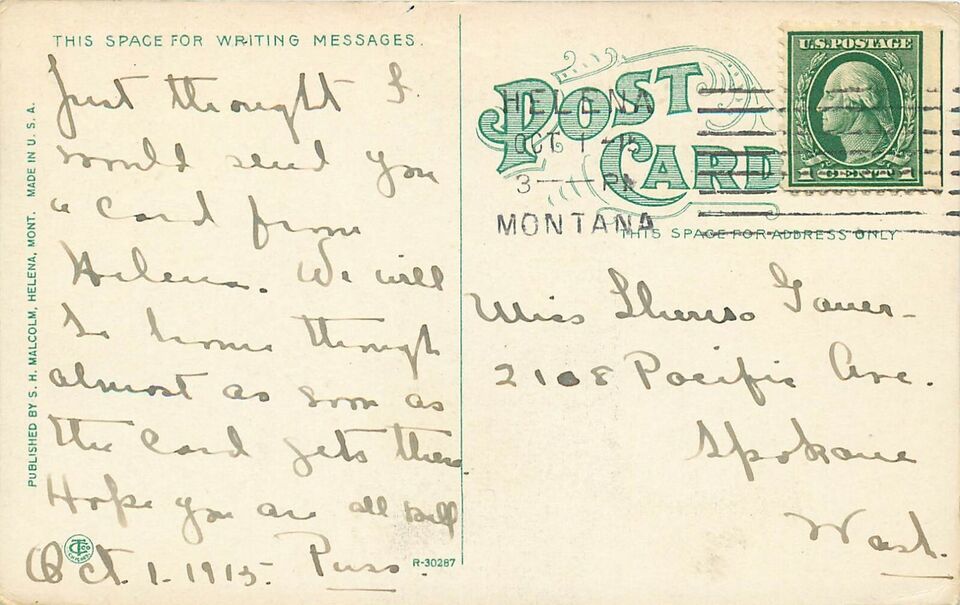 THIS SPACE FOR WRITING MESSAGES.
Just thought I
would send you
a card from
Helena. We will
be home though
almost as soon as
the card gets there
Hope you are all well
Oct. 1. 1915. Puss.
PUBLISHED BY S. H. MALCOLM, HELENA, MONT. MADE IN U. S. A.
R-30287
POST CARD
HELENA
OCT 1-15
3 — PM
MONTANA
U.S. POSTAGE
1 CENT 1
THIS SPACE FOR ADDRESS ONLY
Miss
2108 Pacific Ave.
Spokane
Wash.